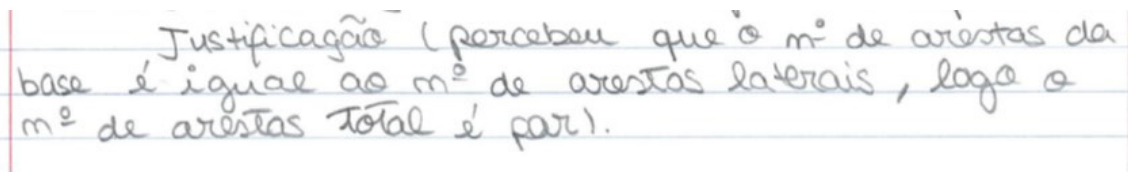 Justificação (percebeu que o nº de arestas da
base é igual ao nº de arestas laterais, logo o
nº de arestas total é par).